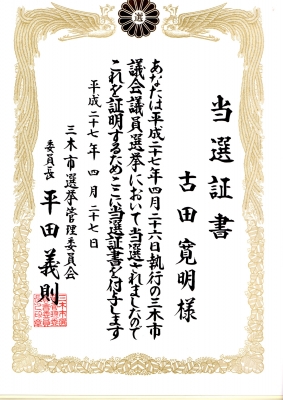 選
当選証書
古田寛明様
あなたは平成二十七年四月二十六日執行の三木市
議会議員選挙において当選されましたので
これを証明するためここに当選証書を付与します
平成二十七年四月二十七日
三木市選挙管理委員会
委員長 平田義則